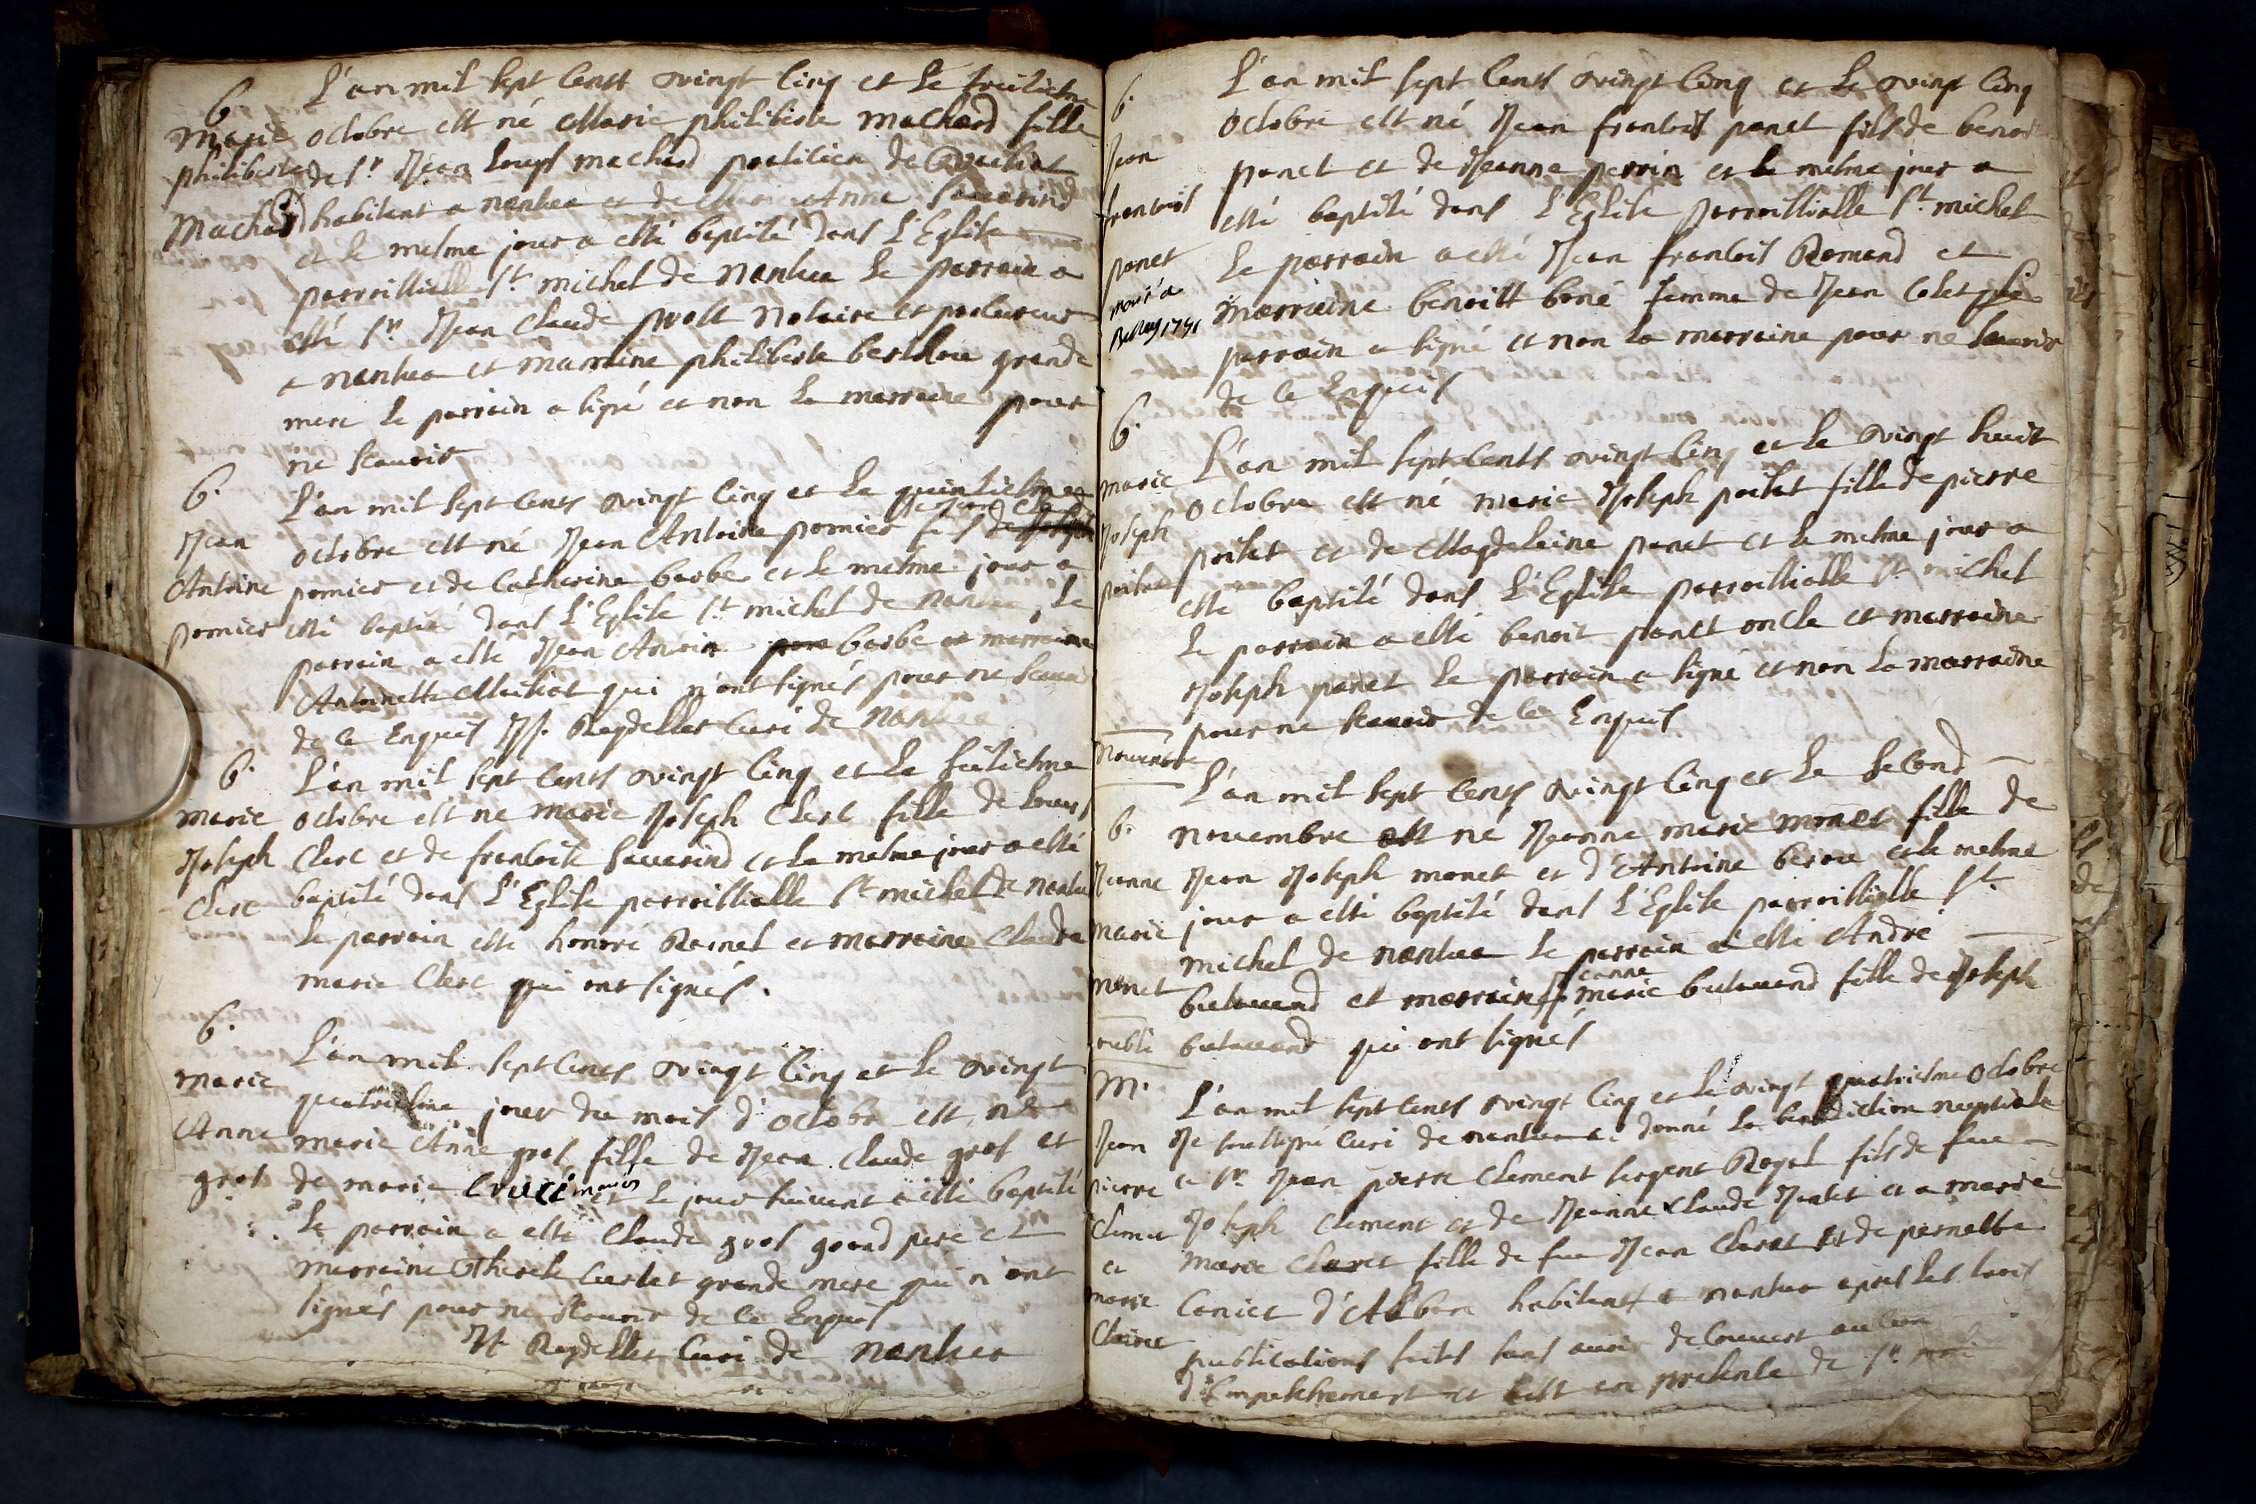 B.
Marie
philiberte
Machard
L'an mil sept cents vingt cinq et le treisiesme
octobre est né Marie philiberte Machard fille
de Sr Jean Louys machard praticien de
habitant a nantua et de Anne Sauarind
et le mesme jour a esté baptisé dans l'Eglise
parroissialle St michel de Nantua le parrain a
esté Sr Jean Claude prost Notaire et procureur
a nantua et marraine philiberte grande
mere le parrain a signé et non la marraine pour
ne scauoir
B.
Jean
Antoine
pomier
L'an mil sept cents vingt cinq et le quinsiesme
octobre est né Jean Antoine pomier fils de
pomier et de Catherine barbe et le mesme jour a
esté baptisé dans l'Eglise St michel de nantua, le
parrain a esté Jean Antoine barbe et marraine
Antoinette qui n'ont signés pour ne scauoir
de ce Enquis JJ. Reydellet Curé de Nantua
B.
marie
Joseph
Clerc
L'an mil sept cents vingt cinq et le seisiesme
octobre est ne marie Joseph Clerc fille de Louys
Clerc et de francoise Sauerind et le mesme jour a esté
baptisé dans l'Eglise parroissialle St michel de nantua
le parrain esté honoré Rainel et marraine Claudra
marie Clerc qui ont signés.
B.
marie
Anne
gros
L'an mil sept cents vingt cinq et le vingt
quatriesme jour du mois d'octobre est née
marie Anne gros fille de Jean Claude gros et
de marie Cruci mariés et le jour suivant a esté baptisé
le parrain a esté Claude gros grand pere et
marraine Therese Carlet grande mere qui n'ont
signés pour ne scauoir de ce Enquis
JJ Reydellet Curé de nantua
B.
Jean
francois
panet
marié a
Bellay 1751
L'an mil sept cents vingt cinq et le vingt cinq
octobre est né Jean francois panet fils de benoit
panet et de Jeanne perrin et le mesme jour a
esté baptisé dans l'Eglise parroissialle St. michel
le parrain a esté Jean francois Romand et
marraine benoist boné femme de Jean Colet le
parrain a signé et non la marraine pour ne scauoir
de ce Enquis
B.
marie
Joseph
poilet
L'an mil sept cents vingt cinq et le vingt huit
octobre est né marie Joseph poilet fille de pierre
poilet et de Magdeleine panet et le mesme jour a
esté baptisé dans l'Eglise parroissialle St michel
le parrain a esté benoit panet oncle et marraine
Joseph panet le parrain a signé et non la marraine
pour ne scauoir de ce Enquis
Nouembre
B.
Jeanne
marie
monet
L'an mil sept cents vingt cinq et le second
nouembre est né Jeanne marie monet fille de
Jean Joseph monet et d'Antoine et le mesme
jour a esté baptisé dans l'Eglise parroissialle St.
michel de nantua le parrain a esté André
butauand et marraine Jeanne marie butauand fille de Joseph
butauand qui ont signés
oublié
M.
Jean
pierre
Clement
et
marie
Claret
L'an mil sept cents vingt cinq et le vingt quatriesme octobre
Je soussigné Curé de nantua ai donné la benediction nuptiale
a Sr Jean pierre Clement sergent Royal fils de feu
Joseph Clement et de Jeanne Claude Jantet et a marie
marie Claret fille de feu Jean Claret et de pernette
Caniet d'Albon habitant a nantua apres les trois
publications faits sans auoir decouuert aucun
d'Empeschement et c'est en presence de Sr